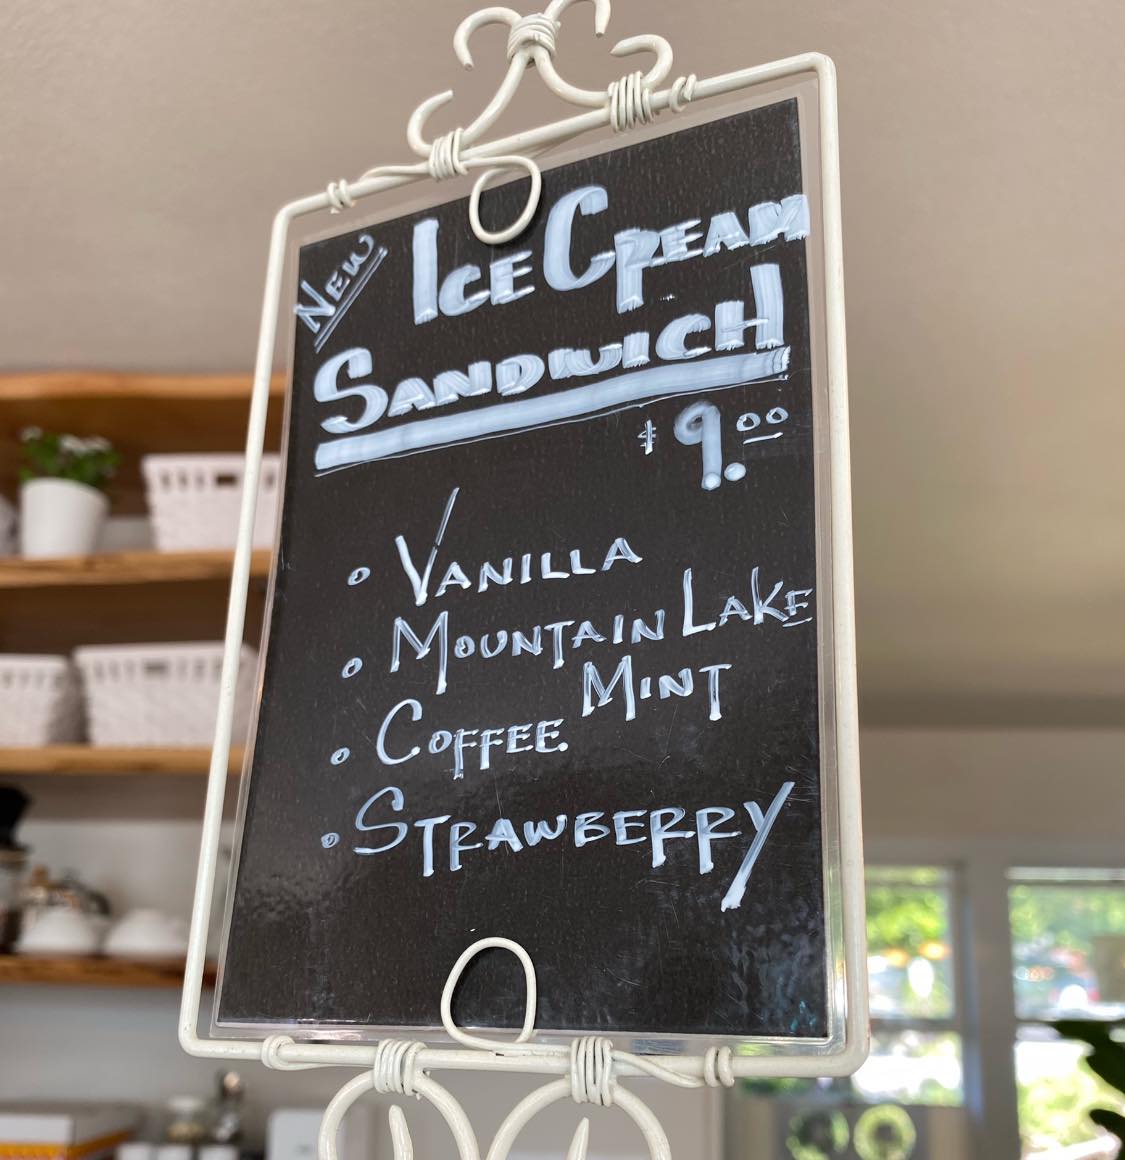 NEW
ICE CREAM
SANDWICH
$9.00
• VANILLA
• MOUNTAIN LAKE
MINT
• COFFEE
• STRAWBERRY